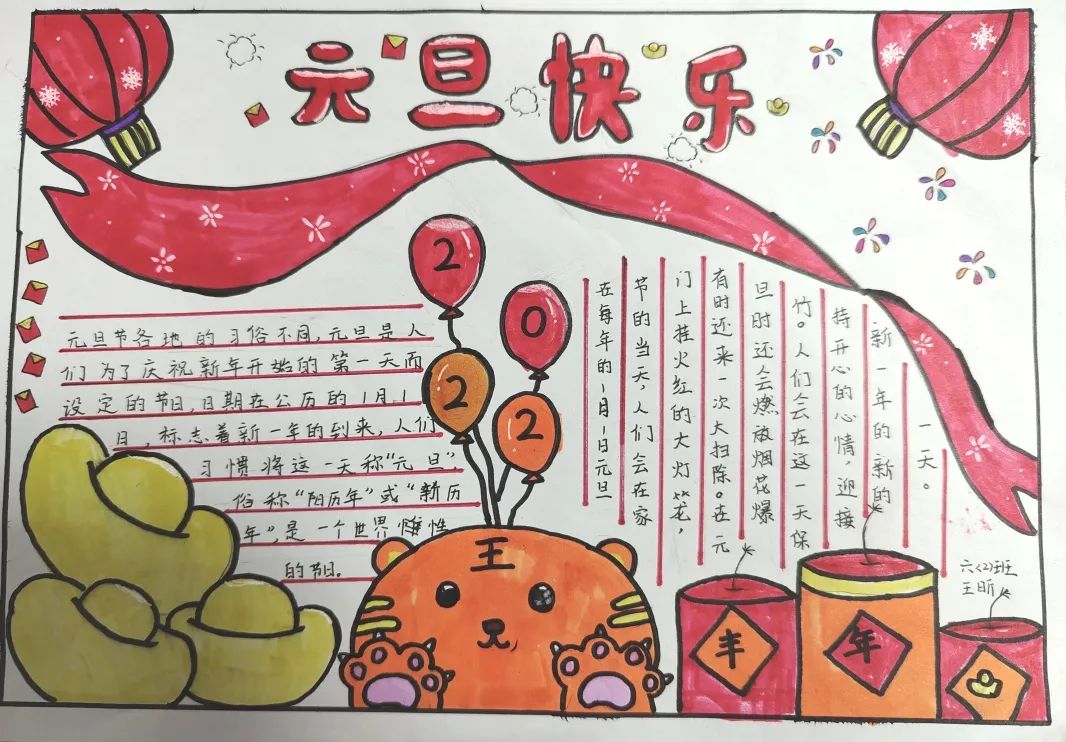 元旦快乐
元旦节各地的习俗不同,元旦是人
们为了庆祝新年开始的第一天而
设定的节日,日期在公历的1月1
日,标志着新一年的到来,人们
习惯将这一天称“元旦”
俗称“阳历年”或“新历
年”,是一个世界性
的节日。
2
0
2
2
在每年的1月1日元旦
节的当天,人们会在家
门上挂火红的大灯笼,
有时还来一次大扫除。在元
旦时还会燃放烟花爆
竹。人们会在这一天保
持开心的心情,迎接
新一年的新的
一天。
王
丰
年
六(2)班
王昕